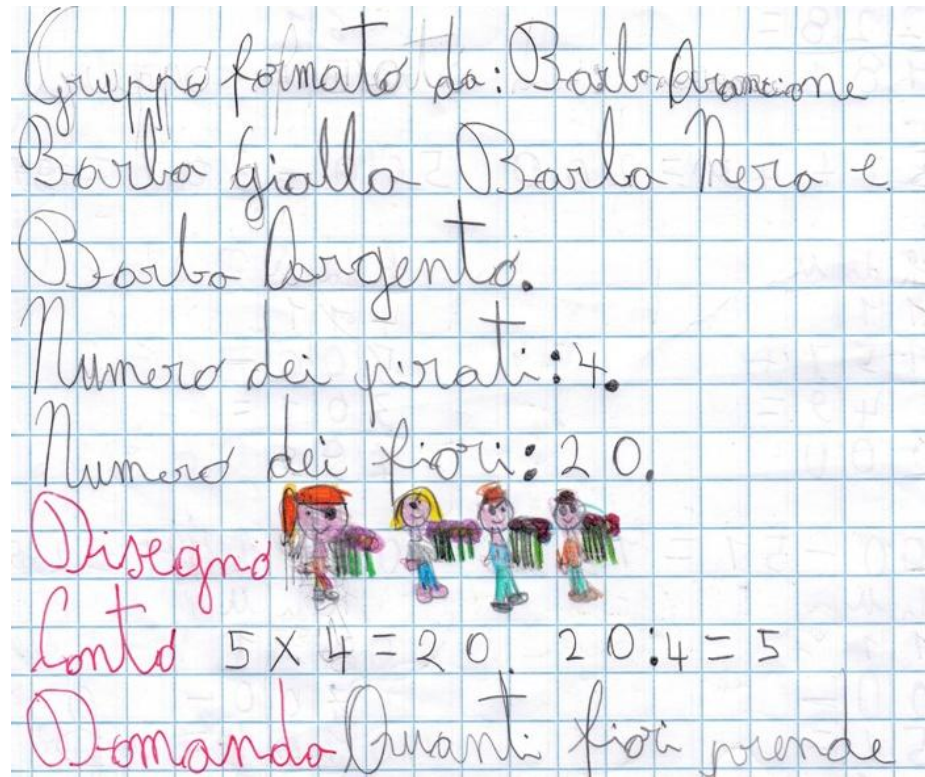 Gruppo formato da: Barba Arancione
Barba gialla Barba Nera e
Barba Argento.
Numero dei pirati: 4.
Numero dei fiori: 20.
Disegno
Conto 5 × 4 = 20. 20:4 = 5
Domanda Quanti fiori prende